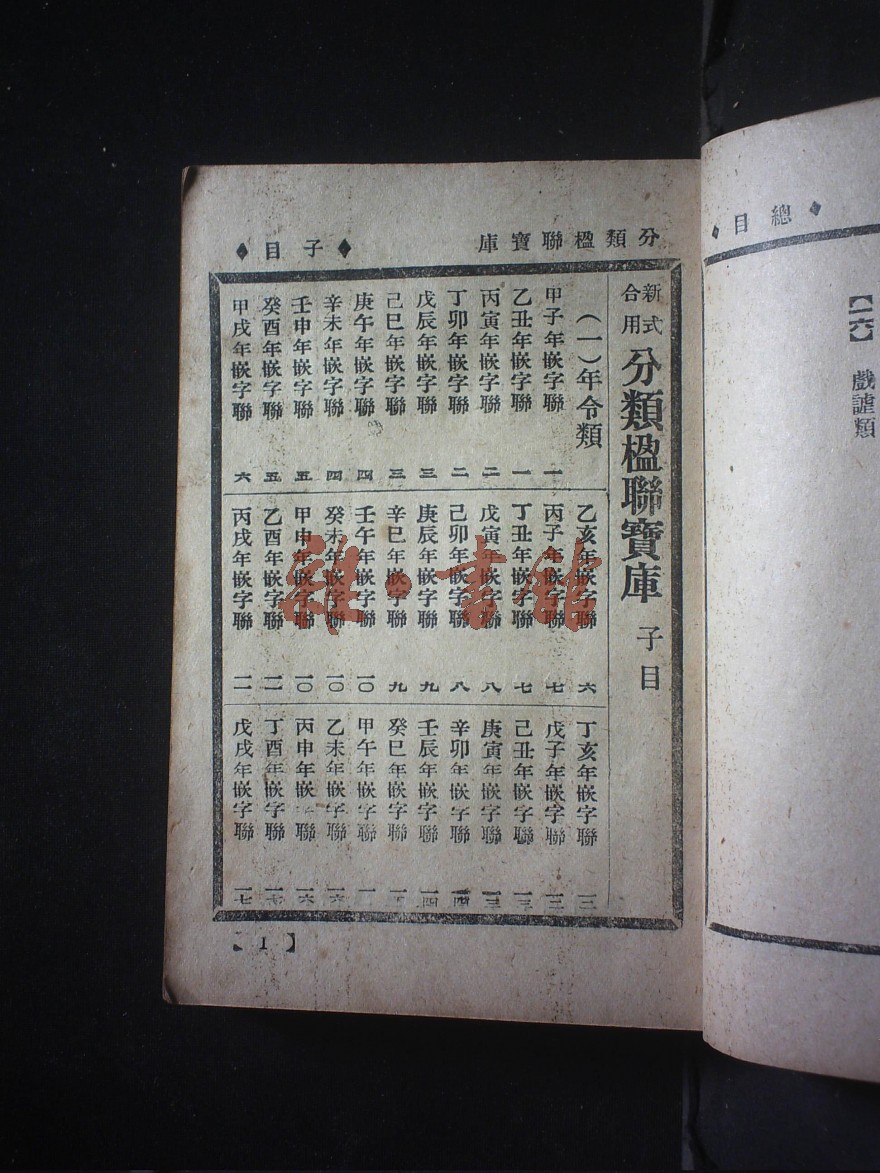 分類楹聯寶庫
◆子目◆
新式合用 分類楹聯寶庫 子目
(一)年令類
甲子年嵌字聯 一
乙丑年嵌字聯 一
丙寅年嵌字聯 二
丁卯年嵌字聯 二
戊辰年嵌字聯 三
己巳年嵌字聯 三
庚午年嵌字聯 四
辛未年嵌字聯 四
壬申年嵌字聯 五
癸酉年嵌字聯 五
甲戌年嵌字聯 六
乙亥年嵌字聯 六
丙子年嵌字聯 七
丁丑年嵌字聯 七
戊寅年嵌字聯 八
己卯年嵌字聯 八
庚辰年嵌字聯 九
辛巳年嵌字聯 九
壬午年嵌字聯 一〇
癸未年嵌字聯 一〇
甲申年嵌字聯 一〇
乙酉年嵌字聯 一一
丙戌年嵌字聯 一一
丁亥年嵌字聯
戊子年嵌字聯
己丑年嵌字聯 一三
庚寅年嵌字聯 一三
辛卯年嵌字聯 一四
壬辰年嵌字聯 一四
癸巳年嵌字聯
甲午年嵌字聯
乙未年嵌字聯 一六
丙申年嵌 聯 一六
丁酉年嵌字聯
戊戌年嵌字聯 一七
【1】
◆總目◆
【一六】 戲謔類
雜·書館